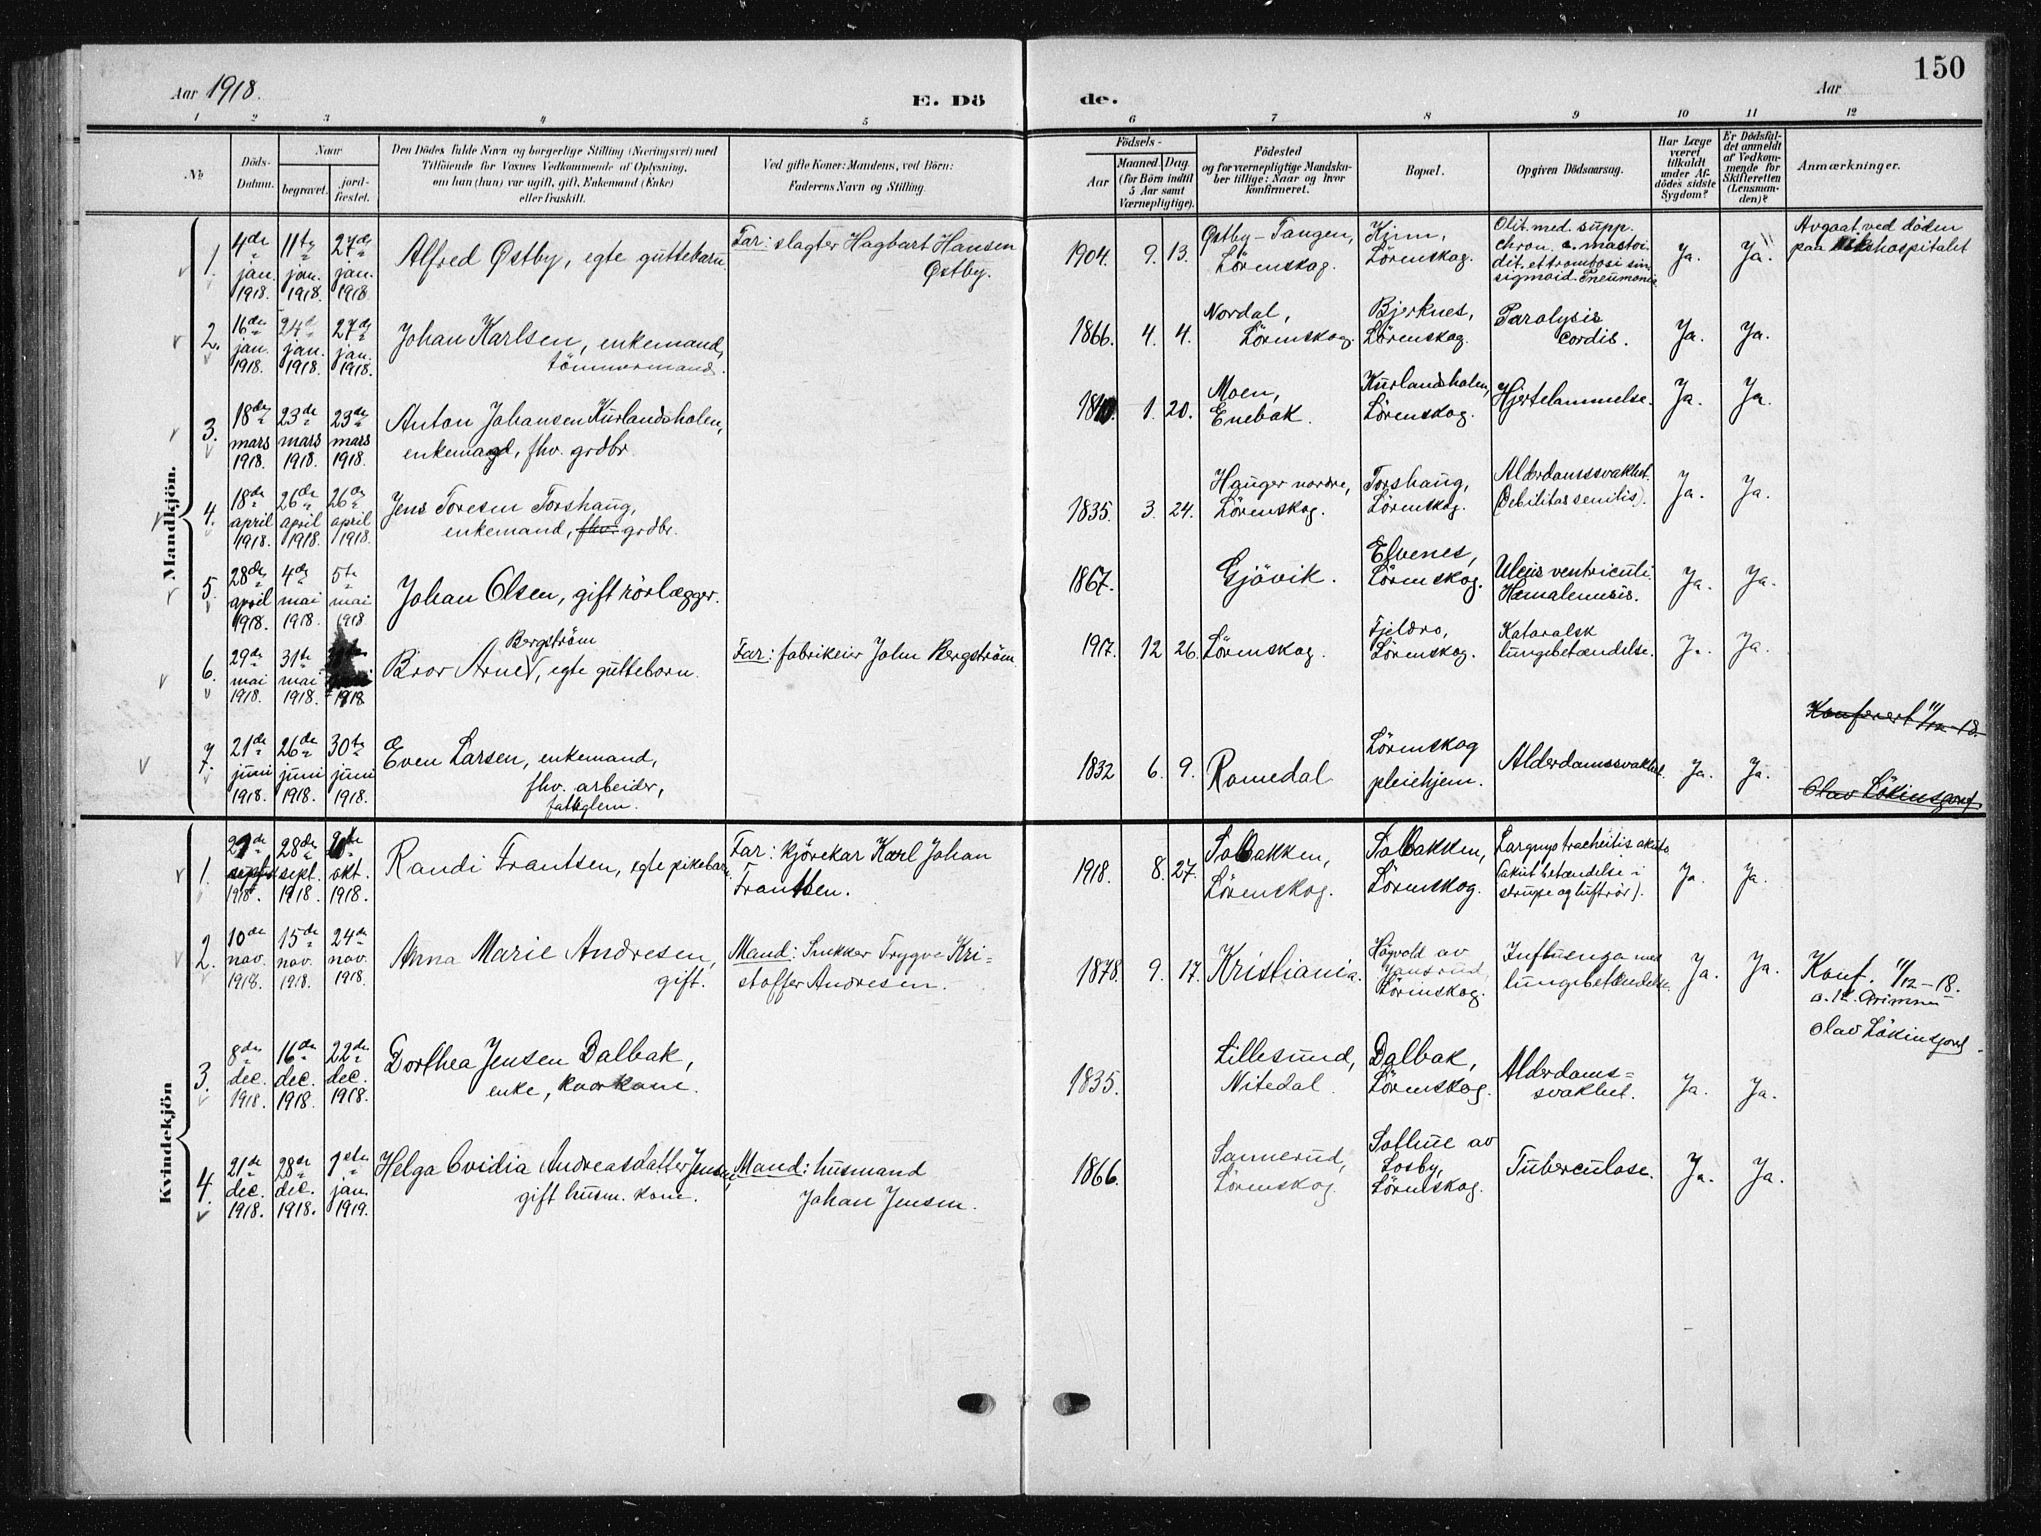 150
Aar 1918.
E. Dö
de.
Aar
1 2 3 4 5 6 7 8 9 10 11 12
No
Döds-Datum.
Naar
begravet.
jord-fæstet.
Den Dödes fulde Navn og borgerlige Stilling (Næringsvei) med
Tilföiende for Voxnes Vedkommende af Oplysning,
om han (hun) var ugift, gift, Enkemand (Enke)
eller fraskilt.
Ved gifte Koner: Mandens, ved Börn:
Faderens Navn og Stilling.
Födsels-
Aar
Maaned. Dag.
(for Börn indtil
5 Aar samt
Værnepligtige).
Födested
og for værnepligtige Mandska-
ber tillige: Naar og hvor
konfirmeret.
Bopæl.
Opgiven Dödsaarsag.
Har Læge
været
tilkaldt
under Af-
dödes sidste
Sygdom?
Er Dödsfal-
det anmeldt
af Vedkom-
mende for
Skifteretten
(Lensman-
den)?
Anmærkninger.
Mandkjön.
1. 4de jan. 1918. 11te jan. 1918. 27de jan. 1918. Alfred Østby, egte guttebarn. Far: slagter Hagbart Hansen Østby. 1904. 9. 13. Østby-Tangen, Lörenskog. Lörenskog. Otit. med. supp. chron. c. mastoi- dit. et trombosi sin. sigmoid. Pneumonie Ja. Ja. Avgaat ved døden paa hospitalet
2. 16de jan. 1918. 24de jan. 1918. 27de jan. 1918. Johan Karlsen, enkemand, tömmermand. 1866. 4. 4. Nordal, Lörenskog. Bjerknes, Lörenskog. Paralysis cordis. Ja. Ja.
3. 18de mars 1918. 23de mars 1918. 23de mars 1918. Anton Johansen Kurlandsholen, enkemand, fhv. grdbr. 1. 20. Moen, Enebak. Kurlandsholen, Lörenskog. Hjertelammelse. Ja. Ja.
4. 18de april 1918. 26de april 1918. 26de april 1918. Jens Toresen Torshaug, enkemand, fhv. grdbr. 1835. 3. 24. Hauger nordre, Lörenskog. Torshaug, Lörenskog. Alderdomssvakhet. (Debilitas senilis). Ja. Ja.
5. 28de april 1918. 4de mai 1918. 5te mai 1918 Johan Olsen, gift rörlægger. 1867. Gjövik. Elvenes, Lörenskog. Ulcus ventriculi. Hæmatemesis. Ja. Ja.
6. 29de mai 1918. 31te mai 1918. 1918 Bror Arne Bergström, egte guttebarn. Far: fabrikeier John Bergström. 1917. 12 26. Lörenskog. Fjeldro, Lörenskog. Kataralsk lungebetændelse. Ja. Ja.
Konfereret 11/12-18.
7. 21de juni 1918. 26de juni 1918. 30te juni 1918. Even Larsen, enkemand, fhv. arbeider, fattiglem. 1832 6. 9. Romedal Lörenskog pleiehjem. Alderdomssvakhet. Ja. Ja.
Olav
Kvindekjön
1. 1918. 28de sept. 1918 okt. 1918. Randi Frantsen, egte pikebarn. Far: kjörekar Karl Johan Frantsen. 1918. 8. 27. Solbakken, Lörenskog. Solbakken, Lörenskog. Laryngotracheitis akuta (akut betændelse i strupe og luftrör). Ja. Ja.
2. 10de nov. 1918. 15de nov. 1918. 24de nov. 1918. Anna Marie Andresen, gift. Mand: Snekker Trygve Kri- stoffer Andresen. 1878. 9. 17. Kristiania. Lörenskog. Influenza med lungebetændelse. Ja. Ja. Konf. 11/12-18.
Olav
3. 8de dec. 1918. 16de dec. 1918. 22de dec. 1918. Dorthea Jensen Dalbak, enke, kone. 1835. Lillesund, Nitedal. Dalbak, Lörenskog. Alderdoms- svakhet. Ja. Ja.
4. 21de dec. 1918. 28de dec. 1918. 1ste jan. 1919. Helga Ovidia Andreasdatter Jensen, gift husm. kone. Mand: husmand Johan Jensen. 1866. Sannerud, Lörenskog. av Losby, Lörenskog. Tuberculose. Ja. Ja.